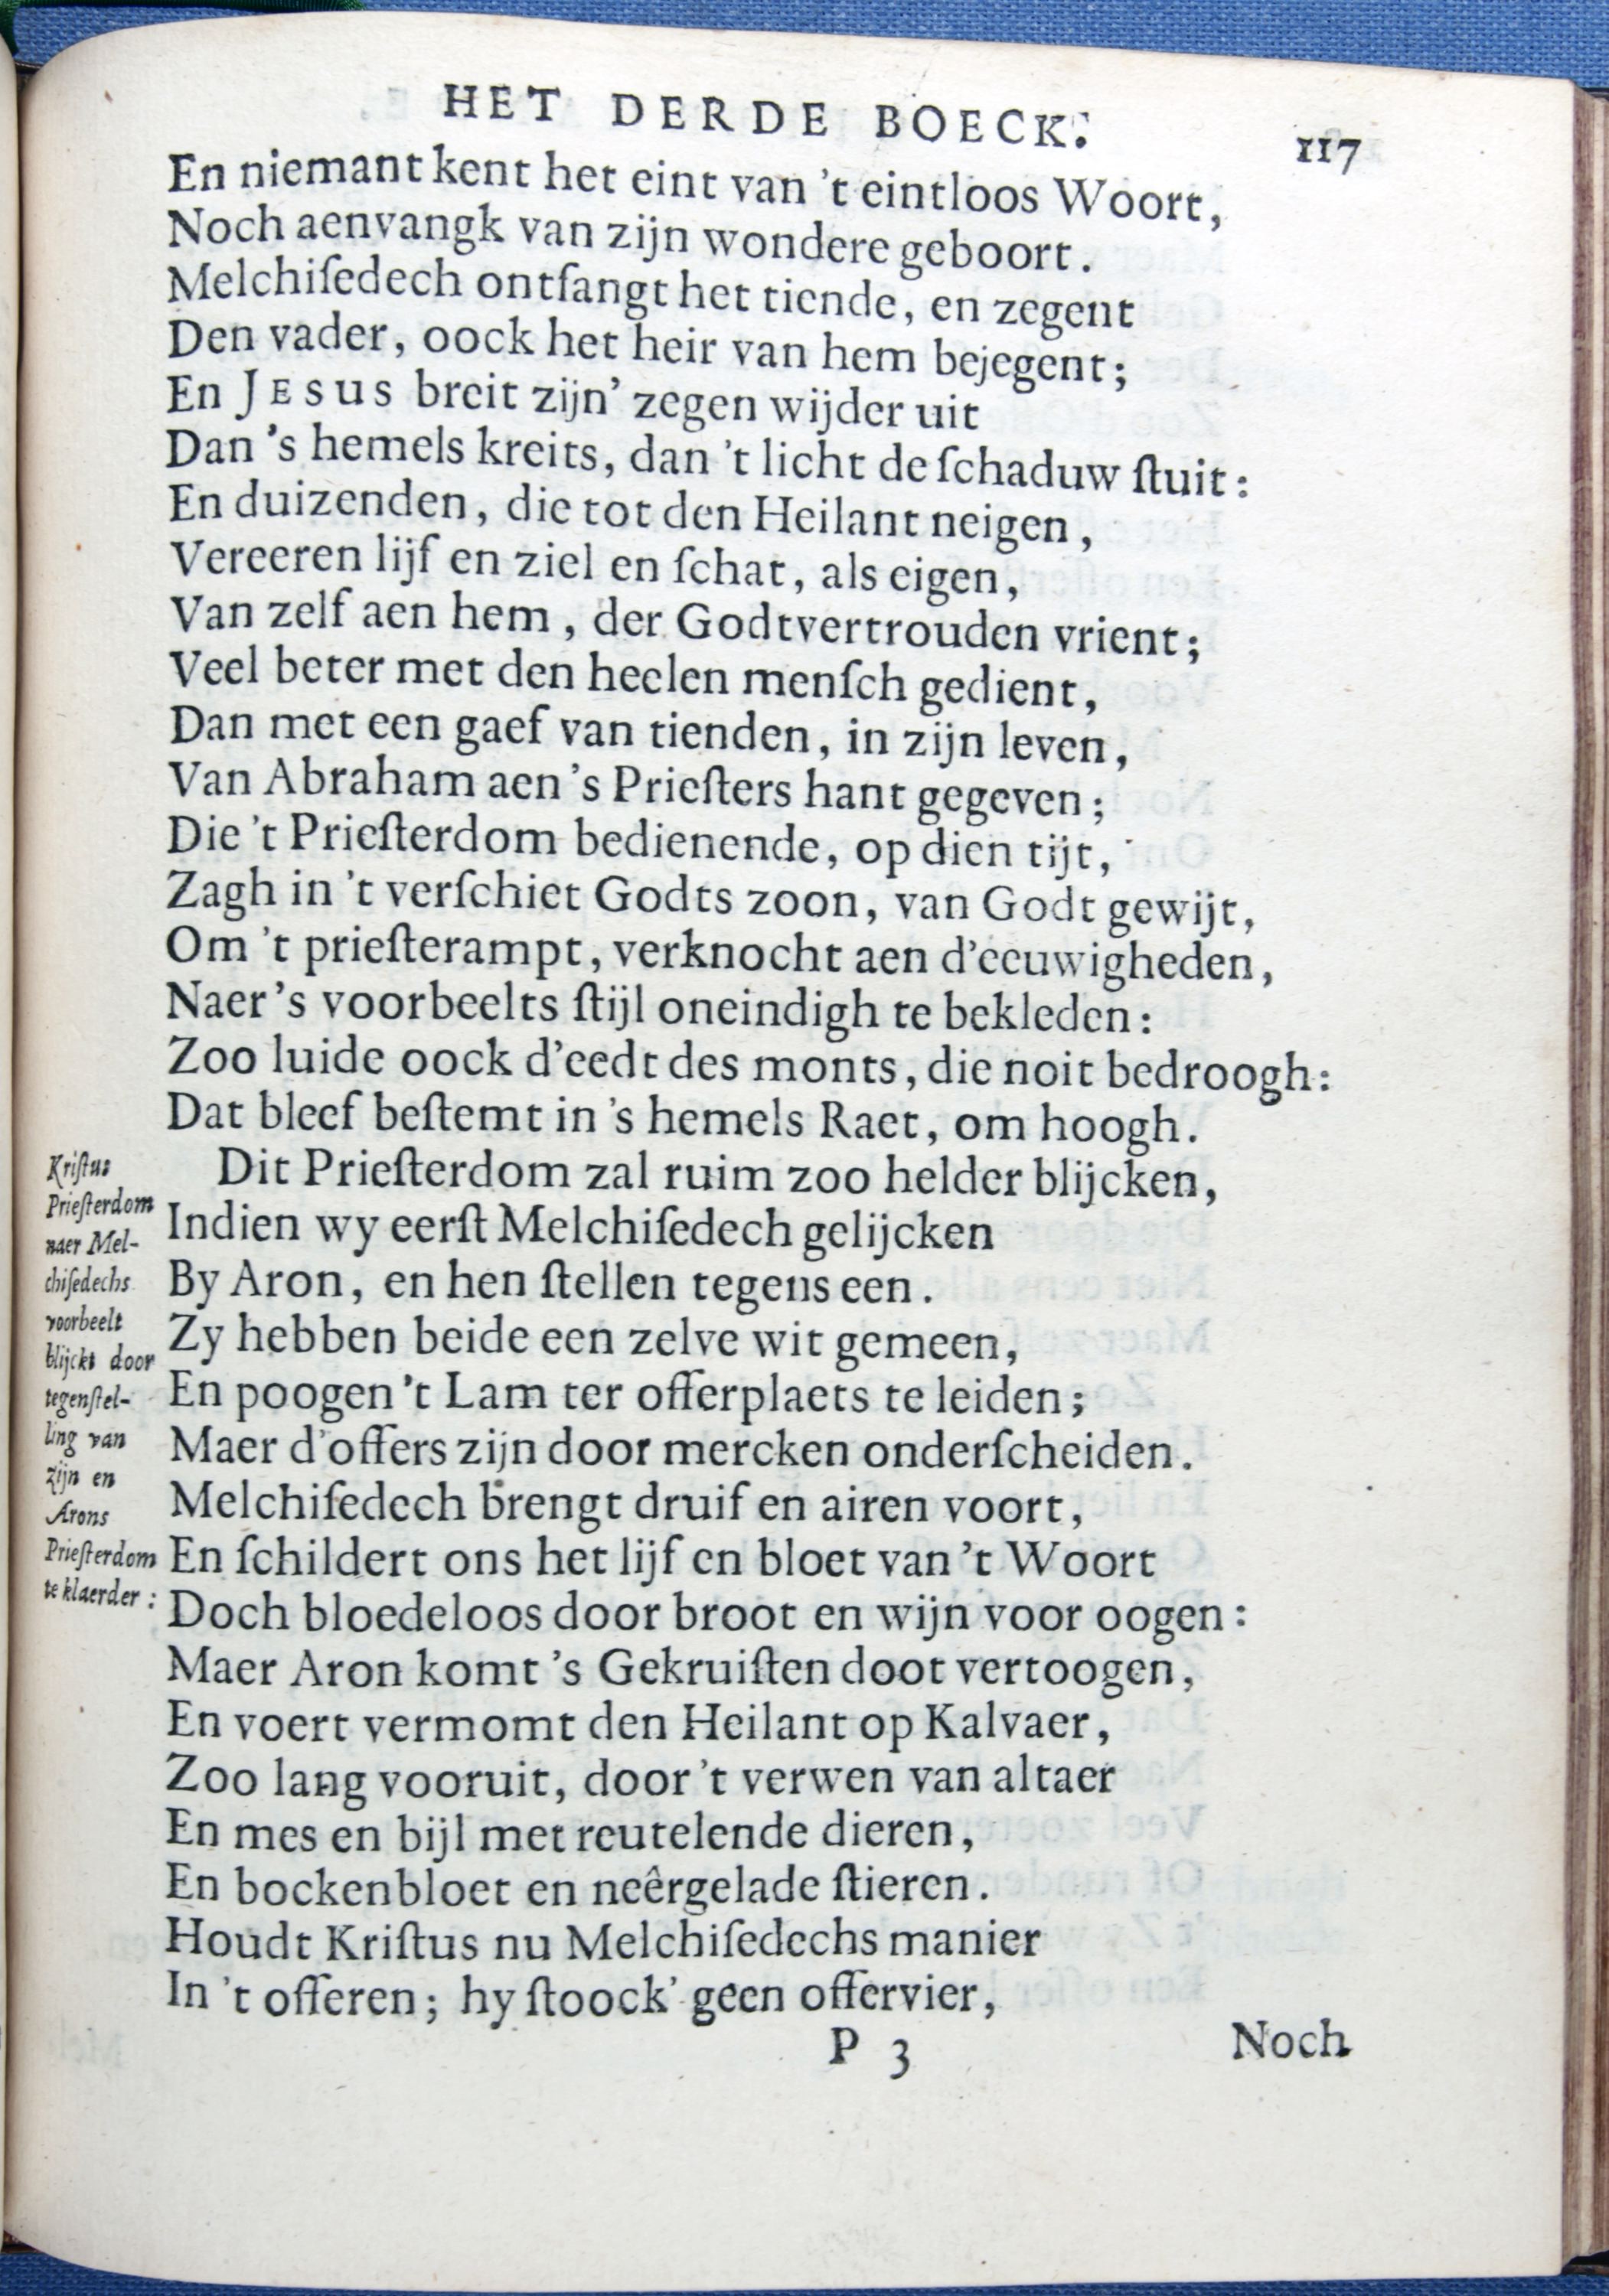 HET DERDE BOECK. 117
En niemant kent het eint van 't eintloos Woort,
Noch aenvangk van zijn wondere geboort.
Melchiſedech ontfangt het tiende, en zegent
Den vader, oock het heir van hem bejegent;
En JESUS breit zijn' zegen wijder uit
Dan 's hemels kreits, dan 't licht de ſchaduw ſtuit:
En duizenden, die tot den Heilant neigen,
Vereeren lijf en ziel en ſchat, als eigen,
Van zelf aen hem, der Godtvertrouden vrient;
Veel beter met den heelen menſch gedient,
Dan met een gaef van tienden, in zijn leven,
Van Abraham aen 's Prieſters hant gegeven;
Die 't Prieſterdom bedienende, op dien tijt,
Zagh in 't verſchiet Godts zoon, van Godt gewijt,
Om 't prieſterampt, verknocht aen d'eeuwigheden,
Naer 's voorbeelts ſtijl oneindigh te bekleden:
Zoo luide oock d'eedt des monts, die noit bedroogh:
Dat bleef beſtemt in 's hemels Raet, om hoogh.
Dit Prieſterdom zal ruim zoo helder blijcken,
Indien wy eerſt Melchiſedech gelijcken
By Aron, en hen ſtellen tegens een.
Zy hebben beide een zelve wit gemeen,
En poogen 't Lam ter offerplaets te leiden;
Maer d'offers zijn door mercken onderſcheiden.
Melchiſedech brengt druif en airen voort,
En ſchildert ons het lijf en bloet van 't Woort
Doch bloedeloos door broot en wijn voor oogen:
Maer Aron komt 's Gekruiſten doot vertoogen,
En voert vermomt den Heilant op Kalvaer,
Zoo lang vooruit, door 't verwen van altaer
En mes en bijl met reutelende dieren,
En bockenbloet en neêrgelade ſtieren.
Houdt Kriſtus nu Melchiſedechs manier
In 't offeren; hy ſtoock' geen offervier,
P 3 Noch
Kriſtus
Prieſterdom
naer Mel-
chiſedechs
voorbeelt
blijckt door
tegenſtel-
ling van
zijn en
Arons
Prieſterdom
te klaerder: